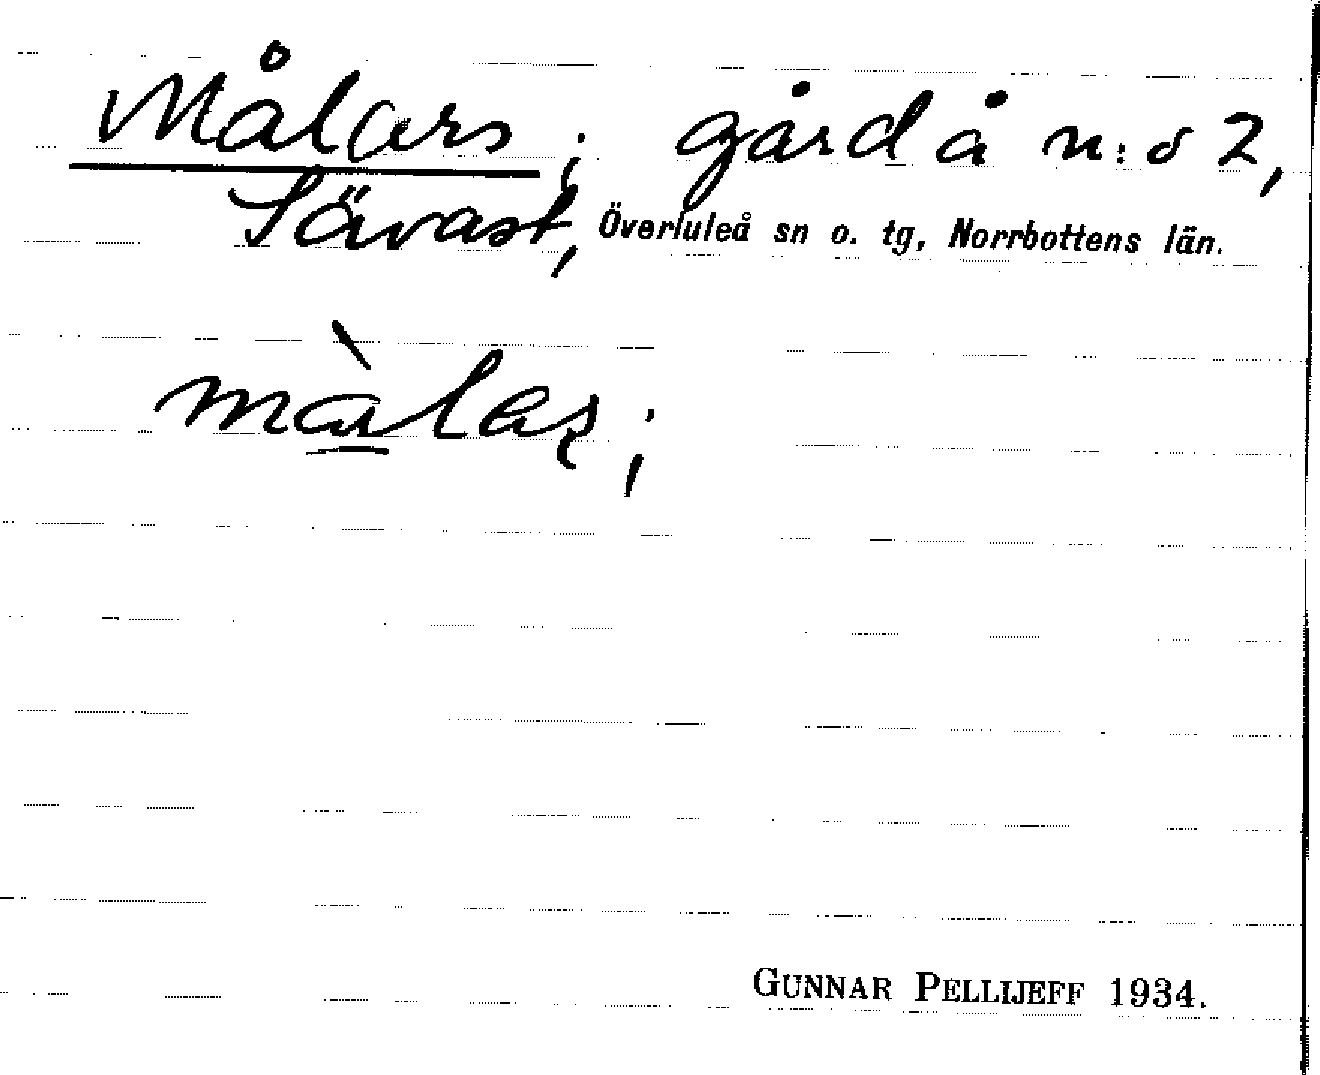 Målars; gård å n:o 2,
Sävast, Överluleå sn o. tg, Norrbottens län.
mà̲lаʂ;
GUNNAR PELLIJEFF 1934.